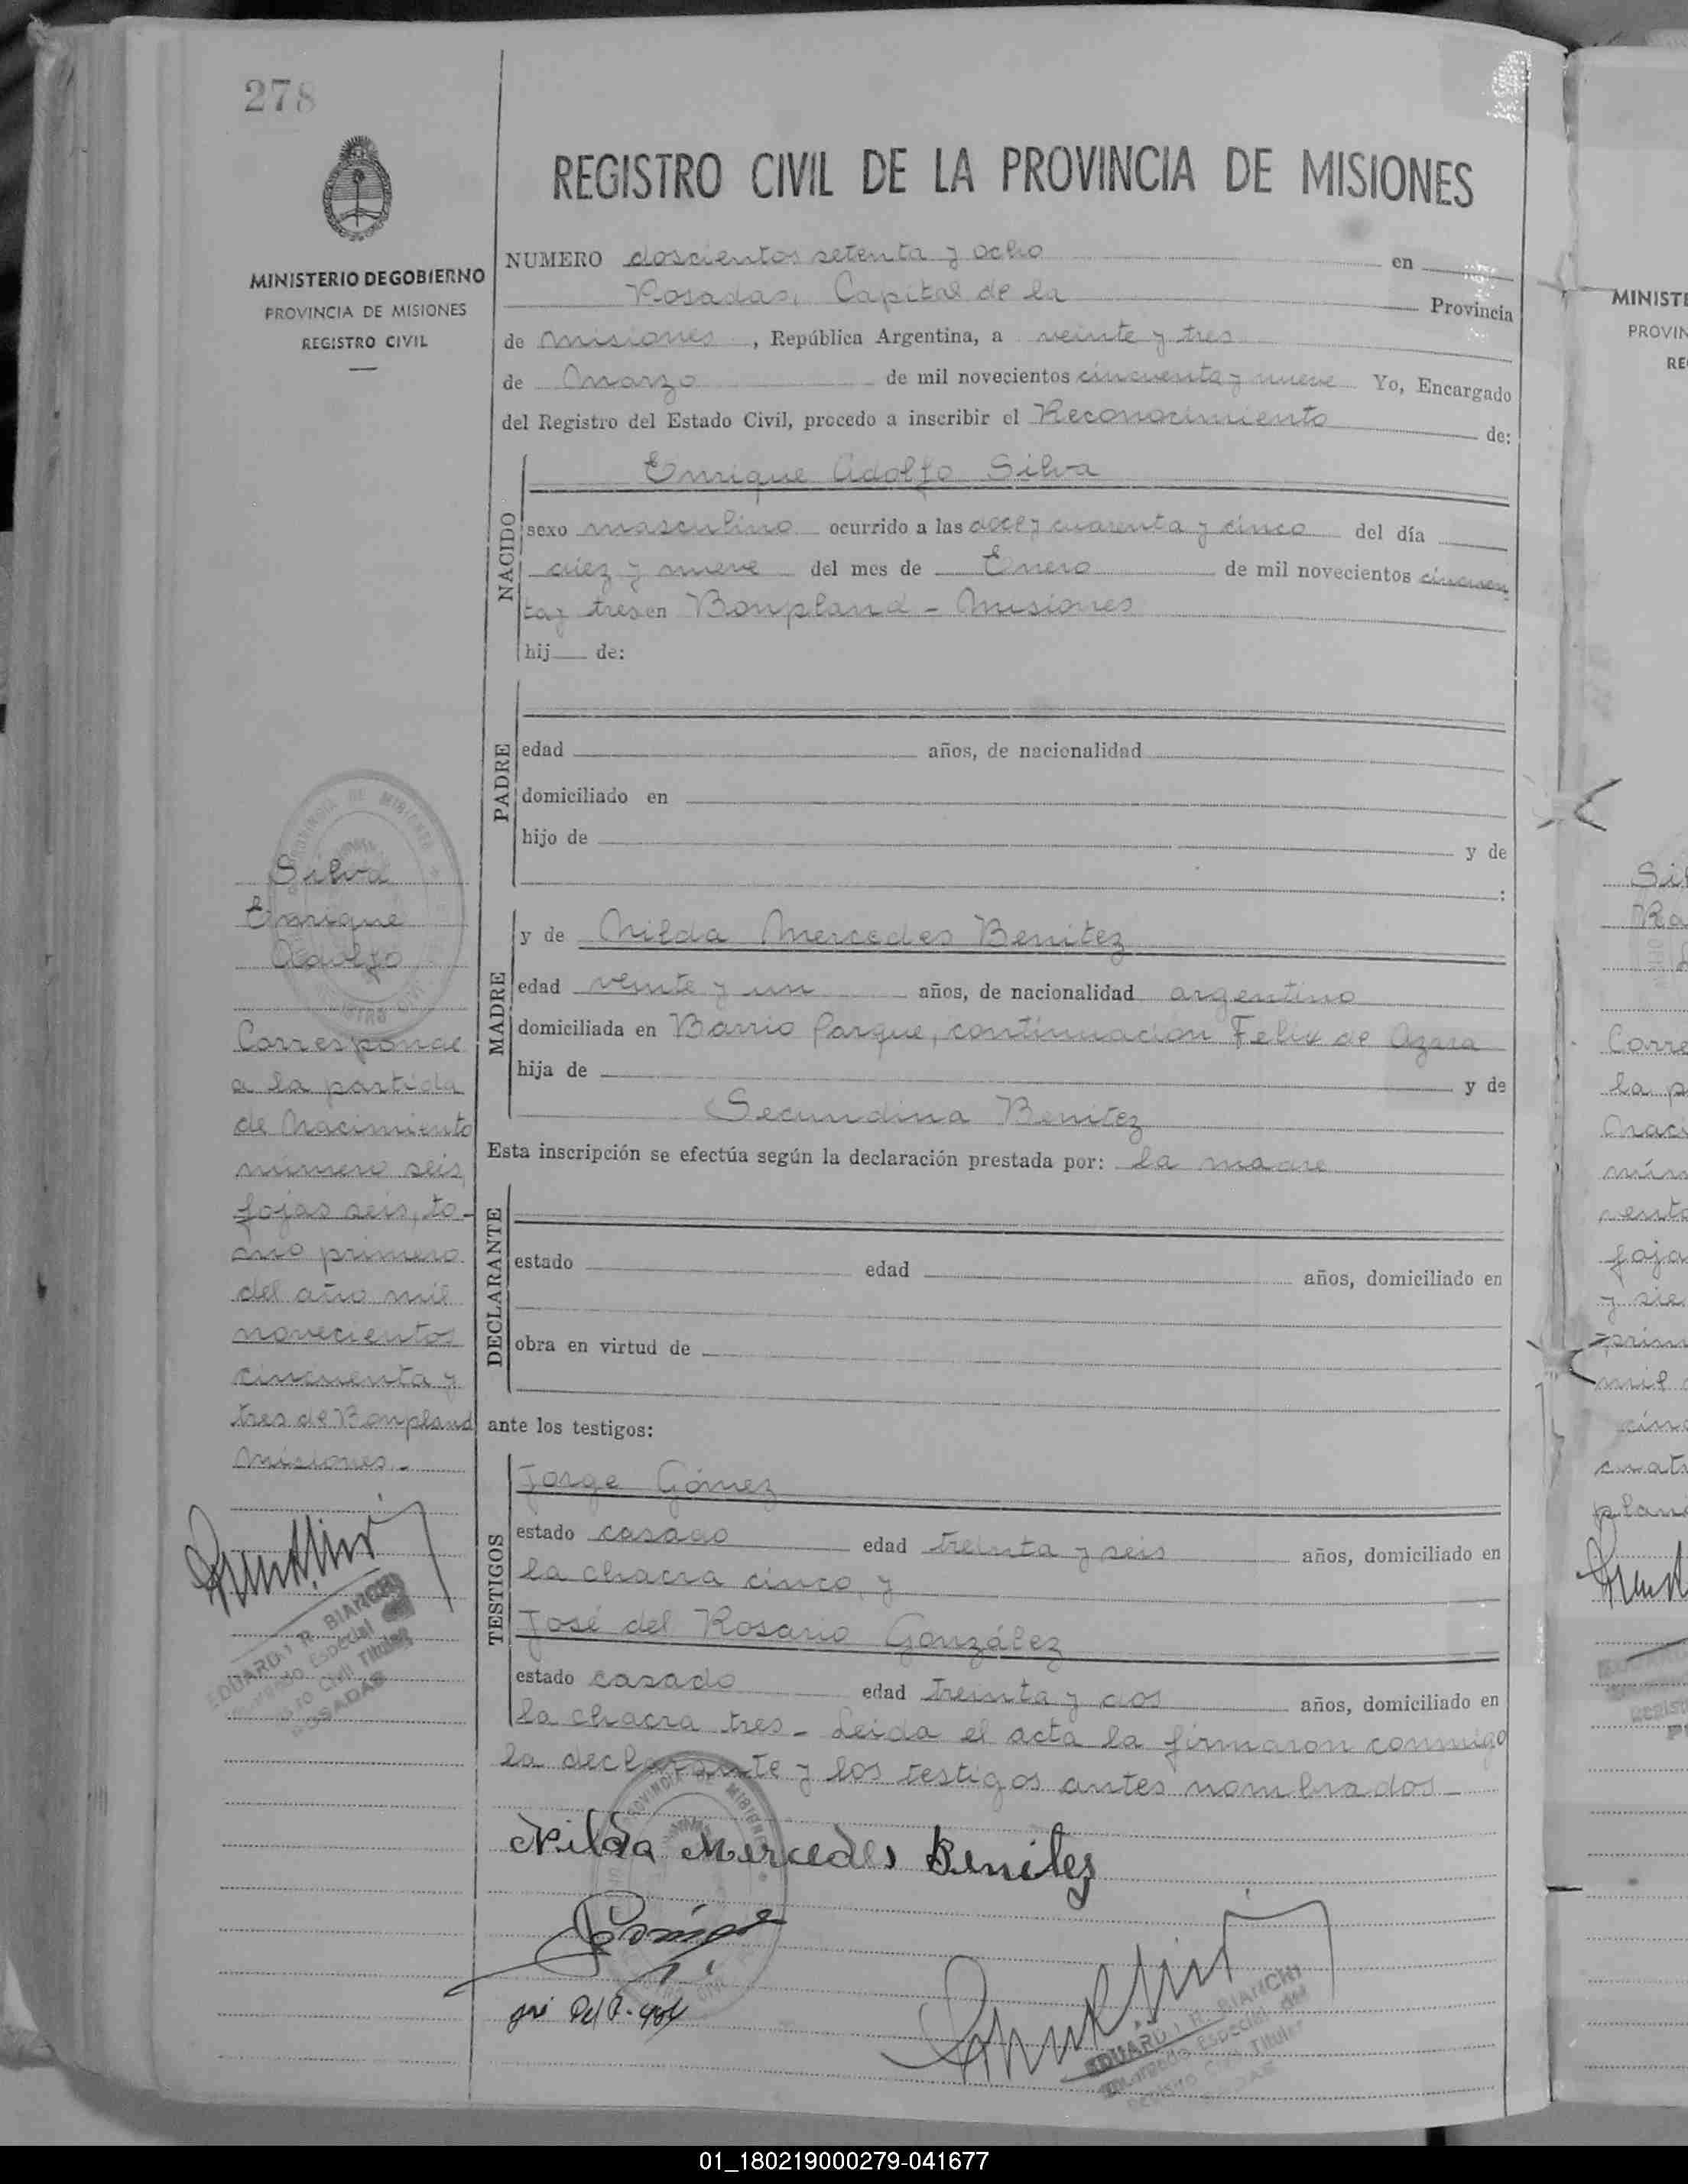 278
MINISTERIO DE GOBIERNO
PROVINCIA DE MISIONES
REGISTRO CIVIL
REGISTRO CIVIL DE LA PROVINCIA DE MISIONES
NUMERO doscientos setenta y ocho en
Posadas, Capital de la Provincia
de Misiones, República Argentina, a veinte y tres
de Marzo de mil novecientos cincuenta y nueve Yo, Encargado
del Registro del Estado Civil, procedo a inscribir el Reconocimiento de:
NACIDO
Enrique Adolfo Silva
sexo masculino ocurrido a las doce y cuarenta y cinco del día
diez y nueve del mes de Enero de mil novecientos cincuen
ta y tres en Bonpland - Misiones
hij de:
PADRE
edad años, de nacionalidad
domiciliado en
hijo de y de
:
MADRE
y de Nilda Mercedes Benitez
edad veinte y un años, de nacionalidad argentino
domiciliada en Barrio Parque, continuacion Felix de Azara
hija de y de
Secundina Benitez
Esta inscripción se efectúa según la declaración prestada por: la madre
DECLARANTE
estado edad años, domiciliado en
obra en virtud de
ante los testigos:
TESTIGOS
Jorge Gómez
estado casado edad treinta y seis años, domiciliado en
la chacra cinco, y
José del Rosario González
estado casado edad treinta y dos años, domiciliado en
la chacra tres - Leida el acta la firmaron conmigo
la declarante y los testigos antes nombrados -
Nilda Mercedes Benitez
EDUARDO R. BIANCHI
Encargado Especial del
Registro Civil Titular
POSADAS
Silva
Enrique
Adolfo
Corresponde
a la partida
de Nacimiento
número seis,
fojas seis, to-
mo primero
del año mil
novecientos
cincuenta y
tres de Bonpland
Misiones.-
EDUARDO R. BIANCHI
Encargado Especial del
Registro Civil Titular
POSADAS
PROVINCIA DE MISIONES
MINISTE
PROVIN
RE
Sil
Ra
Corre
la p
Naci
núm
foja
y sie
prim
mil
cinc
cuat
plan
01_180219000279-041677